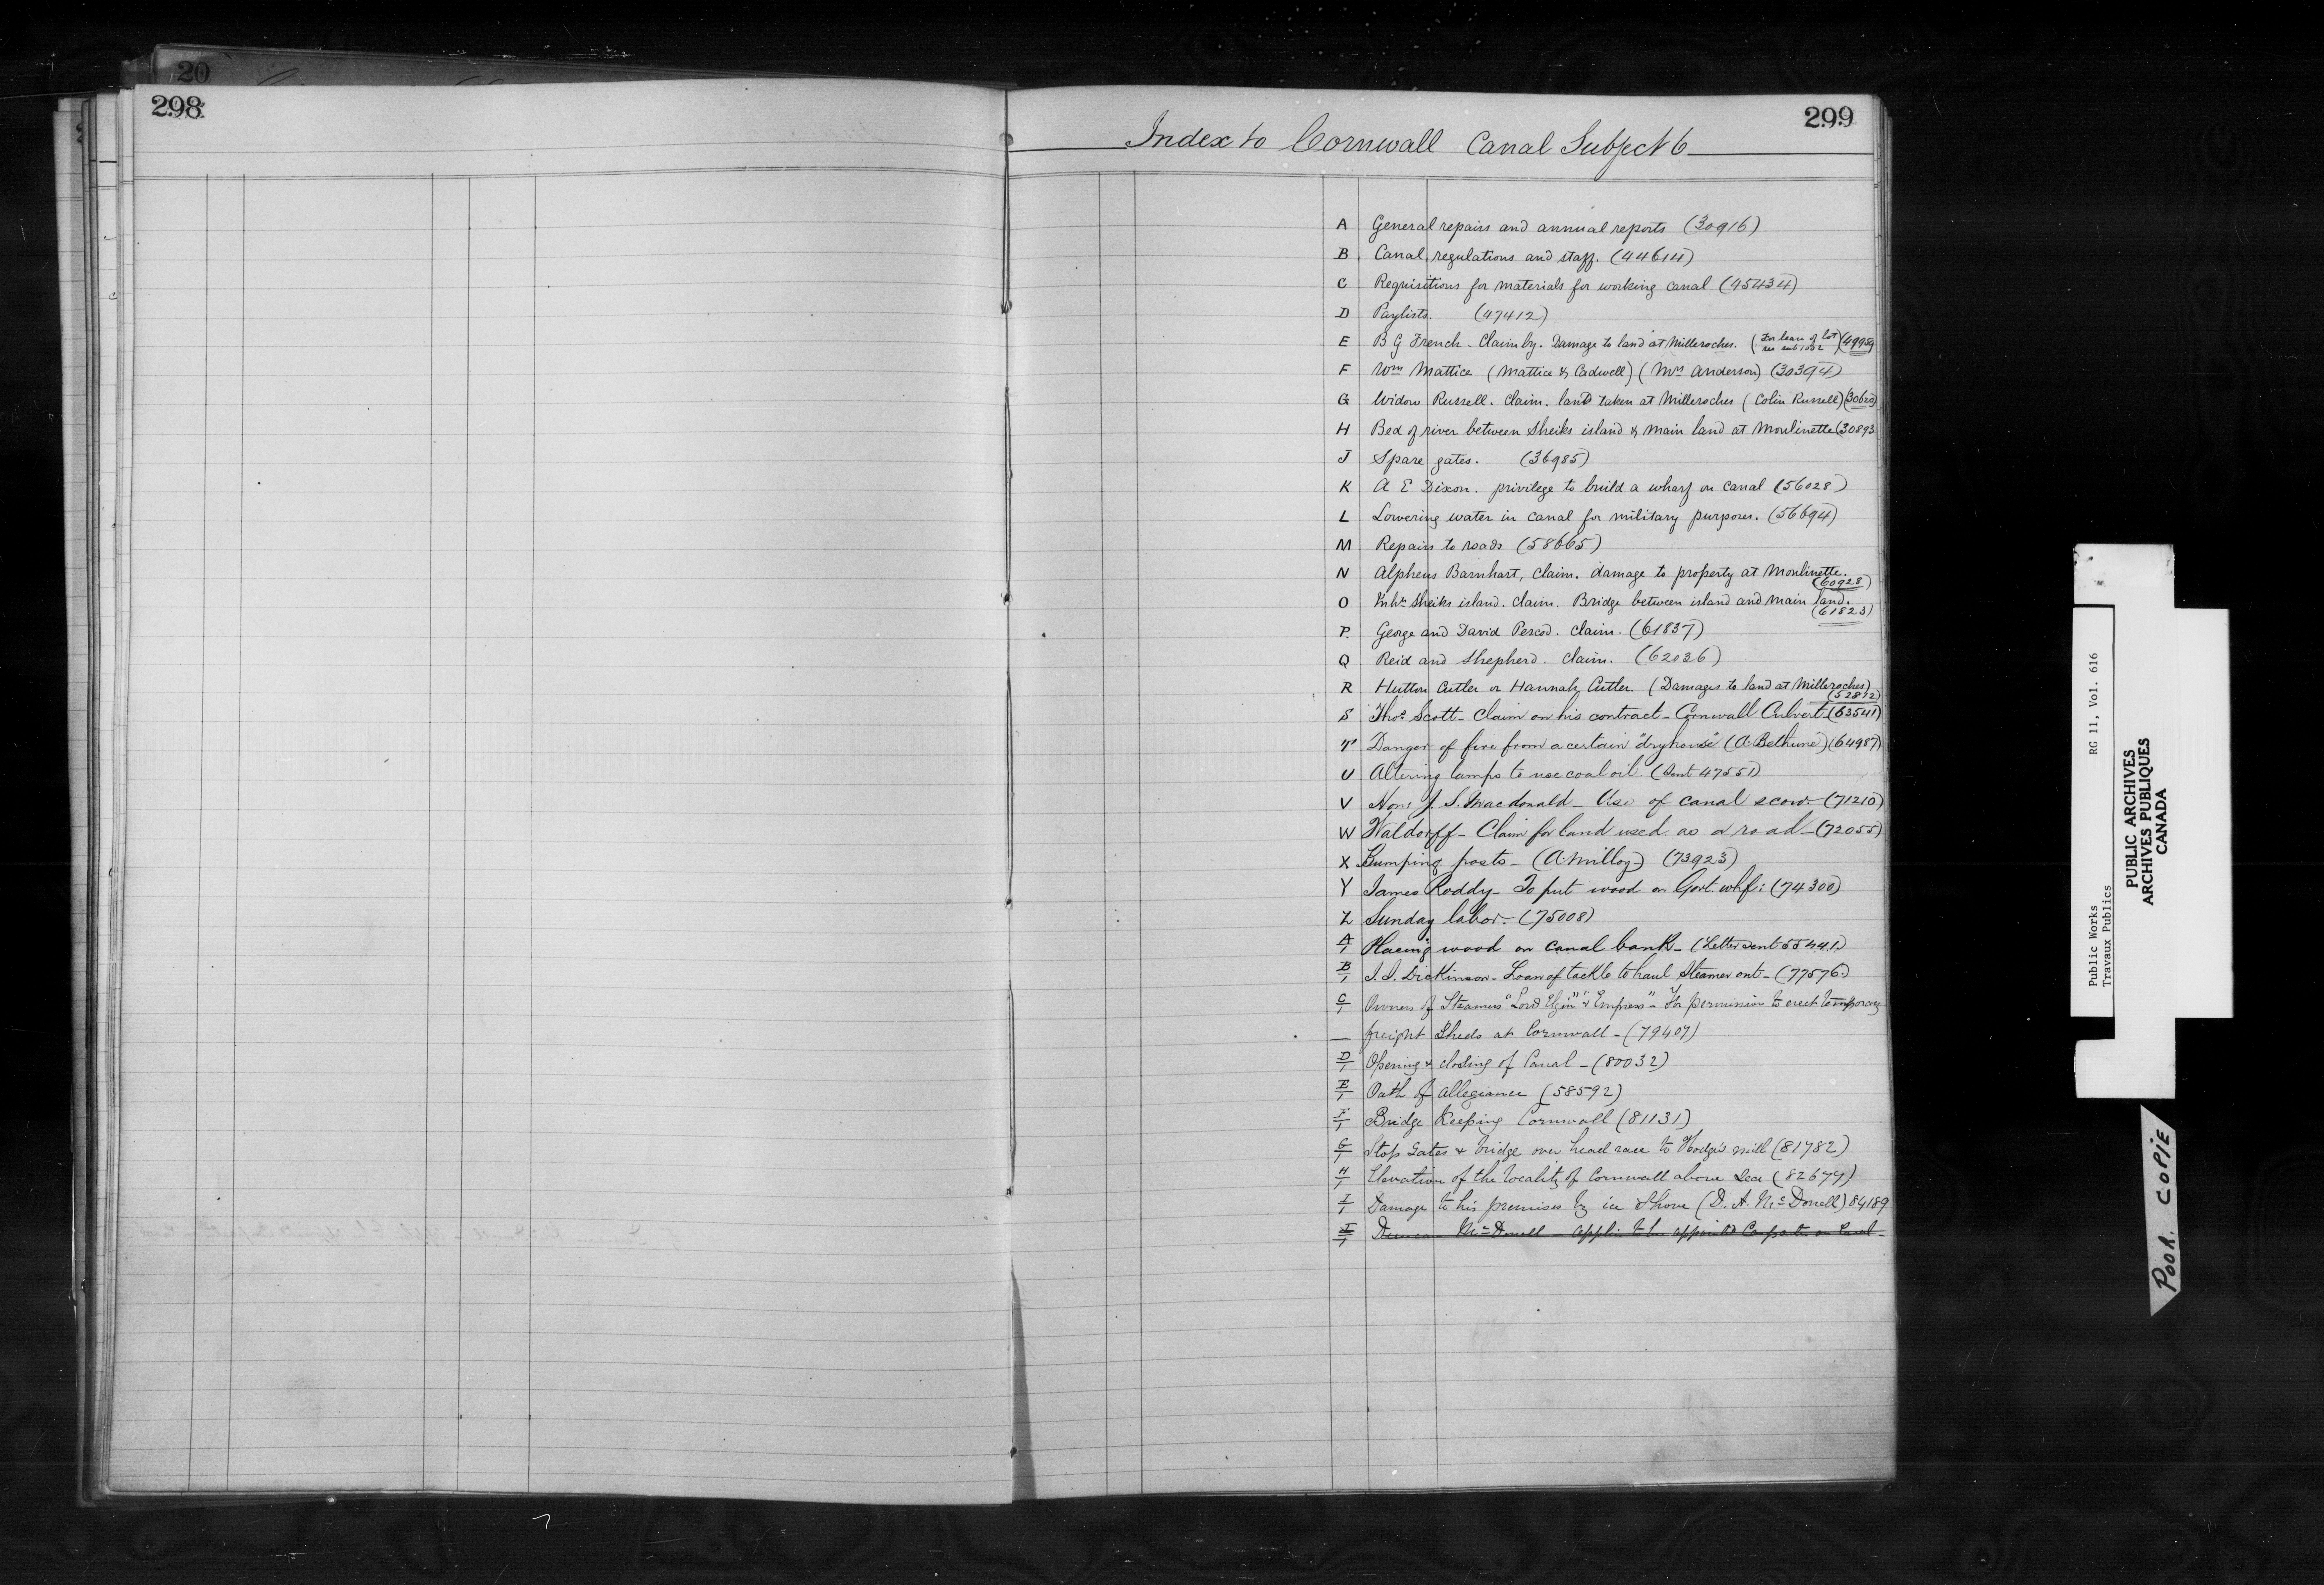 20
298
299
Index to Cornwall Canal Subject 6
A General repairs and annual reports (30916)
B Canal regulations and staff. (44614)
C Requisitions for materials for working canal (95434)
D Paylists. (47412)
E B G French - Claim by. Damage to land at Milleroches. (For lease of lot see sub 1032) (49959)
F Wm Mattice (Mattice & Cadwell) (Mrs Anderson) (30394)
G Widow Russell. Claim. land taken at Milleroches (Colin Russell) (30620)
H Bed of river between Sheiks island & main land at Moulinette (30893
J Spare gates. (36985)
K A E Dixon. privilege to build a wharf on canal (56028)
L Lowering water in canal for military purposes. (56694)
M Repairs to roads (58665)
N Alpheus Barnhart, claim. damage to property at Moulinette.
(60928)
O Inhts Sheiks island. claim. Bridge between island and main land.
(61823)
P. George and David Pescod. claim. (61837)
Q Reid and Shepherd. claim. (62036)
R Hutton Cutler or Hannah Cutler. (Damages to land at Milleroches)
(52812)
S Thos Scott - Claim on his contract - Cornwall Culvert - (63541)
T Danger of fire from a certain "dryhouse" (A. Bethune) (64987)
U Altering lamps to use coal oil. (Sent 47551)
V Hon: J. S. Macdonald - Use of canal scow. - (71210)
W Waldorff - Claim for land used as a road - (72055)
X Bumping posts - (A. Milloy) (73923)
Y James Roddy - To put wood on Govt. whf: (74300)
Z Sunday labor. - (75008)
A/1 Placing wood on canal bank - (Letter sent 55441.)
B/1 J. I. Dickinson - Loan of tackle to haul Steamer out - (77576.)
C/1 Owners of Steamers "Lord Elgin" & "Empress" - For permission to erect temporary
— freight Sheds at Cornwall - (79407)
D/1 Opening & closing of Canal - (80032)
E/1 Oath of allegiance (58592)
F/1 Bridge Keeping Cornwall (81131)
G/1 Stop Gates & bridge over head race to Hodge's mill (81782)
H/1 Elevation of the locality of Cornwall above Sea (82679)
I/1 Damage to his premises by ice shove (D. A. McDonell) 84189
McDonell - Applic. to be appointed Carpenter on Canal -
Public Works RG 11, Vol. 616
Travaux Publics
PUBLIC ARCHIVES
ARCHIVES PUBLIQUES
CANADA
POOR COPIE